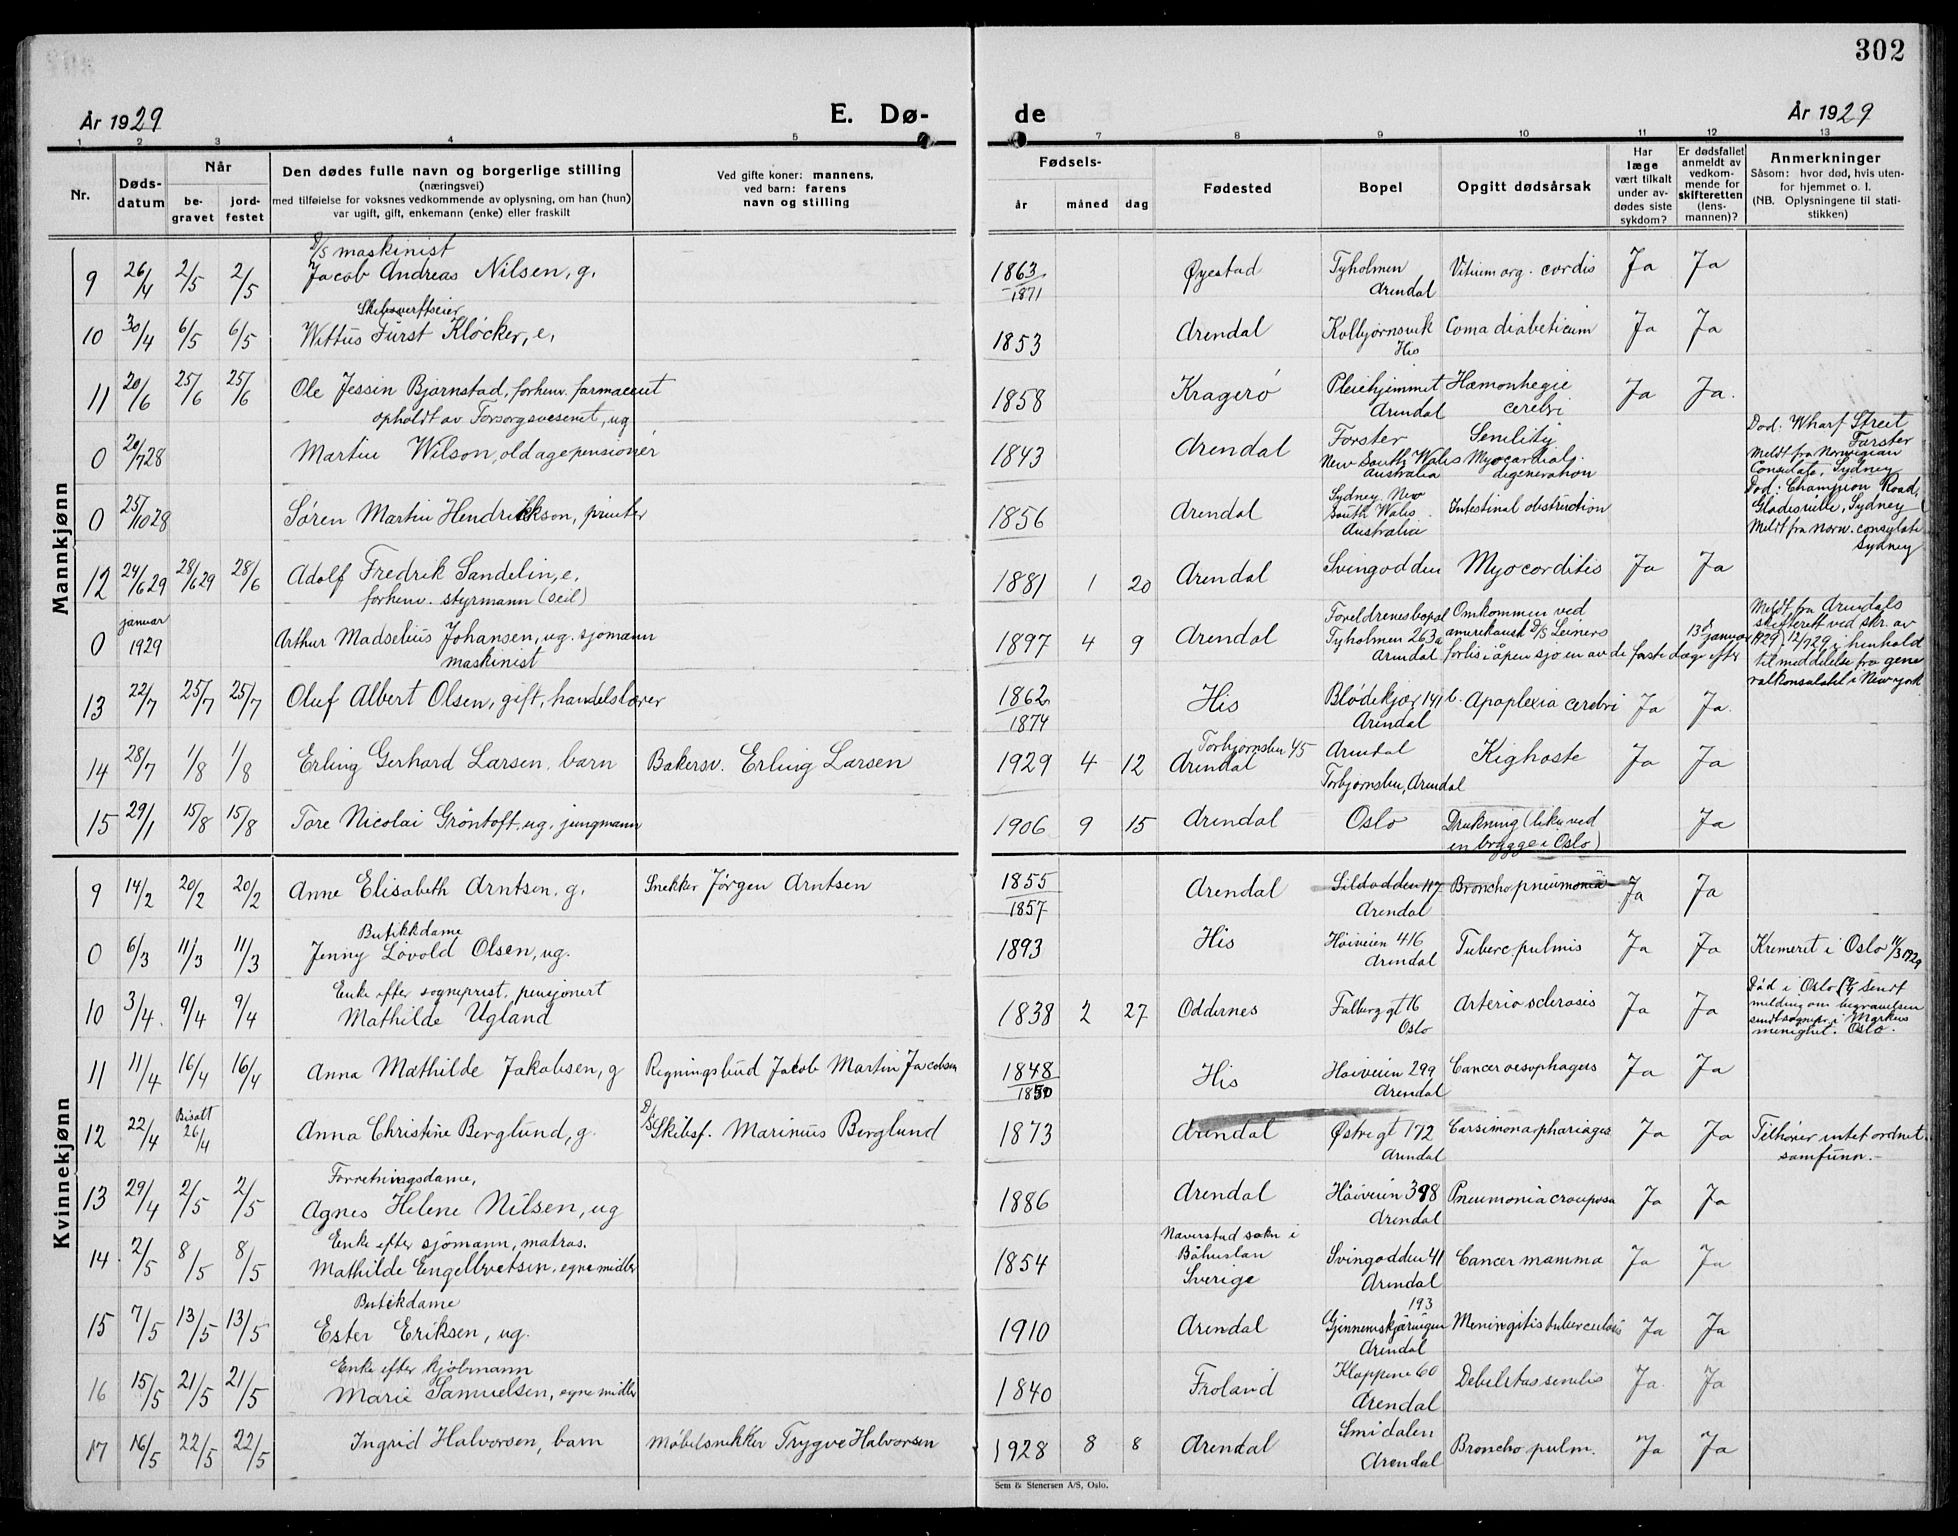 302
År 1929
E. Dø-
de
År 1929
1 2 3 4 5 7 8 9 10 11 12 13
Nr.
Døds-
datum
Når
be-
gravet
jord-
festet
Den dødes fulle navn og borgerlige stilling
(næringsvei)
med tilføielse for voksnes vedkommende av oplysning, om han (hun)
var ugift, gift, enkemann (enke) eller fraskilt
Ved gifte koner: mannens,
ved barn: farens
navn og stilling
Fødsels-
år måned dag
Fødested
Bopel
Opgitt dødsårsak
Har
læge
vært tilkalt
under av-
dødes siste
sykdom?
Er dødsfallet
anmeldt av
vedkom-
mende for
skifteretten
(lens-
mannen)?
Anmerkninger
Såsom: hvor død, hvis uten-
for hjemmet o. l.
(NB. Oplysningene til stati-
stikken)
Mannkjønn
D/S maskinist
9 26/4 2/5 2/5 Jacob Andreas Nilsen, g. 1863/1871 Øyestad Tyholmen Arendal Vitium org. cordis Ja Ja
Skibsverftseier
10 30/4 6/5 6/5 Wittus Fürst Kløcker, e. 1853 Arendal Kolbjørnsvik His Coma diabeticum Ja Ja
11 20/6 25/6 25/6 Ole Jessin Bjørnstad, forhenv. farmaceut 1858 Kragerö Pleiehjemmet Arendal Hæmorrhagie cerebri Ja Ja.
opholdt av Forsorgsvesenet, ug
0 20/7 28 Martin Wilson, old age pensioner 1843 Arendal Forster New South Wales Australia Senility Myocardial digeneration Død: Wharf Street Forster
Meldt fra Norwegian Consulate, Sydney
0 25/10 28 Søren Martin Hendrikson, printer 1856 Arendal Sydney New South Wales Australia Intestinal obstruction Død: Champion Road, Gladisville, Sydney
Meldt fra Norw. consulate Sydney
12 24/6 29 28/6 29 28/6 Adolf Fredrik Sandelin, e. 1881 1 20 Arendal Svingodden Myocarditis Ja Ja
forhenv. styrmann (seil)
0 januar 1929 Arthur Madselius Johansen, ug. sjømann 1897 4 9 Arendal Foreldrenes bopel Tyholmen 263a Arendal Omkommen ved amerikansk D/S Leiners forlis i åpen sjø en av de første dage efter 13de januar 1929 Meldt fra Arendals skifterett ved skr. av 12/7 29 i henhold til meddelelse fra generalkonsulatet i New york
maskinist
13 22/7 25/7 25/7 Oluf Albert Olsen, gift, handelslærer 1862/1874 His Blødekjær 141 b. Arendal Apoplexia cerebri Ja Ja.
14 28/7 1/8 1/8 Erling Gerhard Larsen, barn Bakersv. Erling Larsen 1929 4 12 Torbjørnsbu 45 Arendal Arendal Torbjørnsbu, Arendal Kighoste Ja Ja
15 29/1 15/8 15/8 Tore Nicolai Gröntoft, ug. jungmann 1906 9 15 Arendal Oslo Drukning (liket ved en brygge i Oslo) Ja
Kvinnekjønn
9 14/2 20/2 20/2 Anne Elisabeth Arntsen, g. Snekker Jørgen Arntsen 1855/1857 Arendal Sildodden 117 Arendal Bronchopneumonia Ja Ja
Butikkdame
0 6/3 11/3 11/3 Jenny Lövold Olsen, ug. 1893 His Høiveien 416 Arendal Tuberc. pulmis Ja Ja Kremeret i Oslo 11/3 1929
Enke efter sogneprest, pensjonert
10 3/4. 9/4 9/4 Mathilde Ugland 1838 2 27 Oddernes Falberggt 16 Oslo Arterio sclerosis Ja Ja Død i Oslo sendt melding om begravelsen sendt sognepr. i Markus menighet. Oslo.
11 11/4 16/4 16/4 Anna Mathilde Jakobsen, g Regningsbud Jacob Martin Jacobsen 1848/1850 His Høiveien 299 Arendal Cancer oesophagers Ja Ja
12 22/4 Bisatt 26/4 Anna Christine Berglund, g. D/S Skibsf. Marinius Berglund 1873 Arendal Østregt 172 Arendal Carsimona phariages Ja Ja Tilhører intet ordnet samfunn.-
Forretningsdame,
13 29/4 2/5 2/5 Agnes Helene Nilsen, ug 1886 Arendal Høiveien 398 Arendal Pneumonia crouposa Ja Ja
Enke efter sjömann, matros.
14 2/5 8/5 8/5 Mathilde Engelbretsen, egne midler 1854 Naverstad sokn i Båhuslan Sverige Svingodden 41 Arendal Cancer mamma Ja Ja
Butikdame
15 7/5 13/5 13/5 Ester Eriksen, ug. 1910 Arendal Gjennemskjæringen 193 Arendal Meningitis tuberculosis Ja Ja
Enke efter kjöbmann
16 15/5 21/5 21/5 Marie Samuelsen, egne midler 1840 Froland Kloppene 60 Arendal Debilitas senilis Ja Ja
17 16/5 22/5 22/5 Ingrid Halvorsen, barn Møbelsnekker Trygve Halvorsen 1928 8 8 Arendal Smidalen Arendal Broncho pulm. Ja Ja
Sem & Stenersen A/S, Oslo.